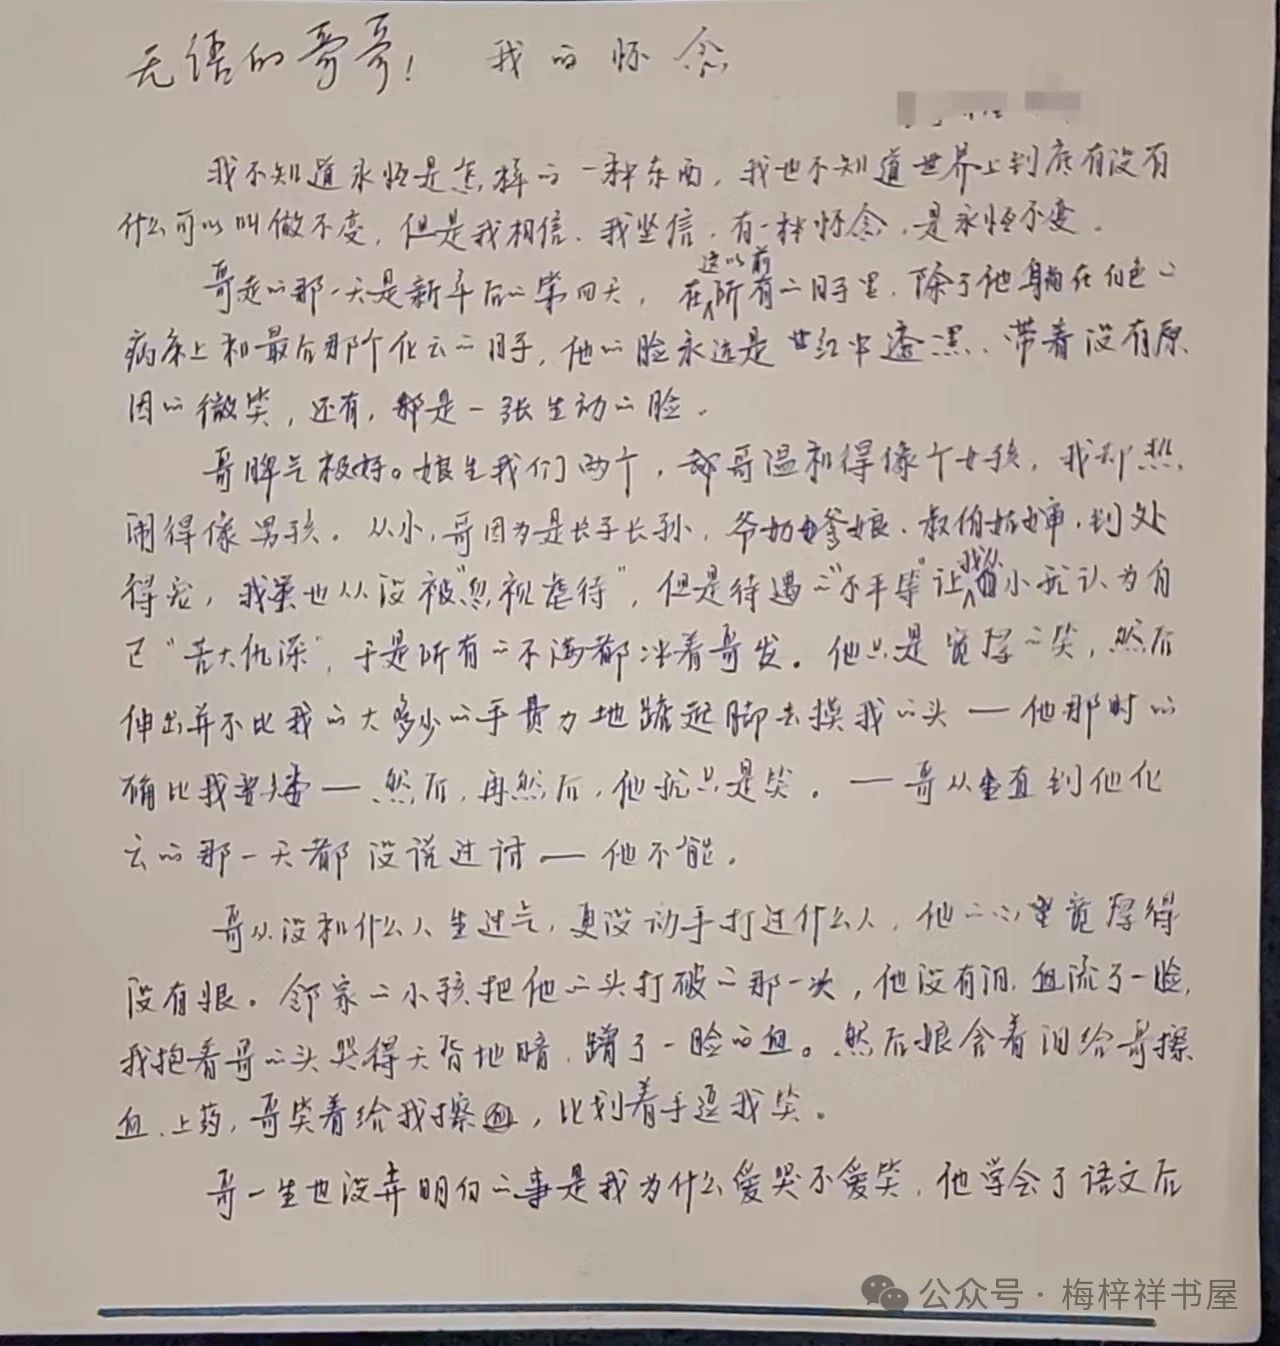 无语的哥哥！ 我的怀念
我不知道永恒是怎样的一种东西，我也不知道世界上到底有没有
什么可以叫做不变，但是我相信、我坚信，有一种怀念，是永恒不变。
哥走的那一天是新年后的第四天，在这以前所有的日子里，除了他躺在白色的
病床上和最后那个化去的日子，他的脸永远是红中透黑、带着没有原
因的微笑，还有，那是一张生动的脸。
哥脾气极好。娘生我们两个，却哥温和得像个女孩，我却热
闹得像男孩。从小，哥因为是长子长孙，爷奶爹娘、叔伯姑婶，到处
得宠，我虽也从没被“忽视虐待”，但是待遇的“不平等”让我从小就认为自
己“苦大仇深”，于是所有的不满都冲着哥发。他只是宽厚的笑，然后
伸出并不比我的大多少的手费力地踮起脚去摸我的头—他那时的
确比我矮—然后，再然后，他就只是笑。—哥从生直到他化
去的那一天都没说过话—他不能。
哥从没和什么人生过气，更没动手打过什么人，他的心宽厚得
没有恨。邻家的小孩把他的头打破的那一次，他没有泪，血流了一脸，
我抱着哥的头哭得天昏地暗，蹭了一脸的血。然后娘含着泪给哥擦
血、上药，哥笑着给我擦血，比划着手逗我笑。
哥一生也没弄明白的事是我为什么爱哭不爱笑，他学会了语文后
公众号·梅梓祥书屋